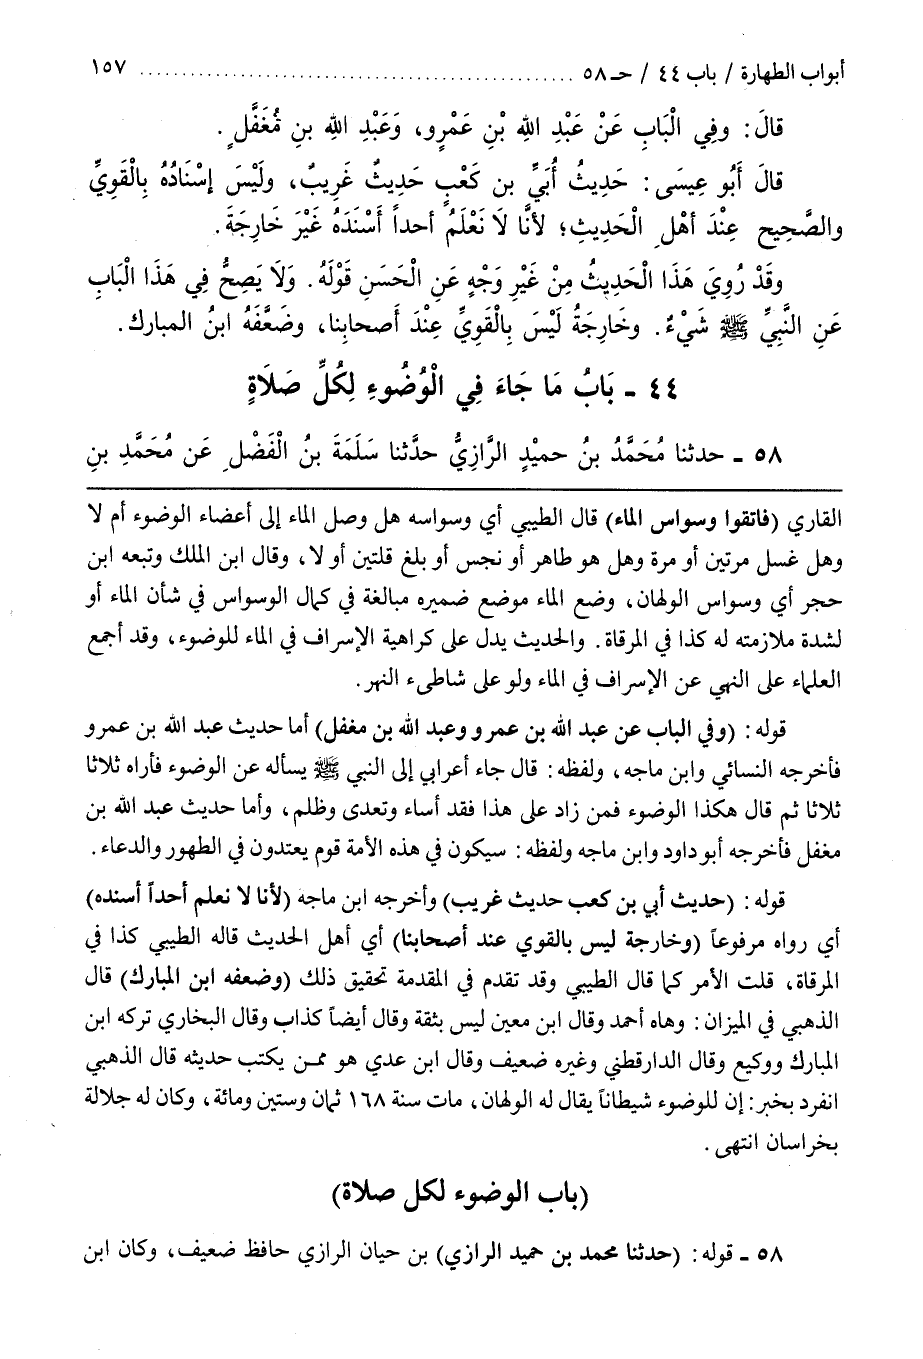 أبواب الطهارة / باب ٤٤ / حـ ٥٨ ............................................................ ١٥٧
قالَ: وفِي الْبَابِ عَنْ عَبْدِ اللهِ بْنِ عَمْرٍو، وَعَبْدِ اللهِ بنِ مُغَفَّلٍ.
قالَ أَبُو عِيسَى: حَدِيثُ أُبَيِّ بن كَعْبٍ حَدِيثٌ غَرِيبٌ، ولَيْسَ إسْنَادُهُ بِالْقَوِيِّ
والصَّحِيحِ عِنْدَ أهْلِ الْحَدِيثِ؛ لأنَّا لَا نَعْلَمُ أحداً أَسْنَدَهُ غَيْرَ خَارِجَةَ.
وقَدْ رُوِيَ هَذَا الْحَدِيثُ مِنْ غَيْرِ وَجْهٍ عَنِ الْحَسَنِ قَوْلَهُ. وَلَا يَصِحُّ فِي هَذَا الْبَابِ
عَنِ النَّبِيِّ ﷺ شَيْءٌ. وخَارِجَةُ لَيْسَ بِالْقَوِيِّ عِنْدَ أَصحابِنا، وضَعَّفَهُ ابنُ المبارك.
٤٤ - بَابُ مَا جَاءَ فِي الْوُضُوءِ لِكُلِّ صَلَاةٍ
٥٨ - حدثنا مُحَمَّدُ بنُ حميْدٍ الرَّازِيُّ حدَّثنا سَلَمَةَ بنُ الْفَضْلِ عَن مُحَمَّدِ بنِ
القاري (فاتقوا وسواس الماء) قال الطيبي أي وسواسه هل وصل الماء إلى أعضاء الوضوء أم لا
وهل غسل مرتين أو مرة وهل هو طاهر أو نجس أو بلغ قلتين أو لا، وقال ابن الملك وتبعه ابن
حجر أي وسواس الولهان، وضع الماء موضع ضميره مبالغة في كمال الوسواس في شأن الماء أو
لشدة ملازمته له كذا في المرقاة. والحديث يدل على كراهية الإسراف في الماء للوضوء، وقد أجمع
العلماء على النهي عن الإسراف في الماء ولو على شاطىء النهر.
قوله: (وفي الباب عن عبد الله بن عمرو وعبد الله بن مغفل) أما حديث عبد الله بن عمرو
فأخرجه النسائي وابن ماجه، ولفظه: قال جاء أعرابي إلى النبي ﷺ يسأله عن الوضوء فأراه ثلاثا
ثلاثا ثم قال هكذا الوضوء فمن زاد على هذا فقد أساء وتعدى وظلم، وأما حديث عبد الله بن
مغفل فأخرجه أبو داود وابن ماجه ولفظه: سيكون في هذه الأمة قوم يعتدون في الطهور والدعاء.
قوله: (حديث أبي بن كعب حديث غريب) وأخرجه ابن ماجه (لأنا لا نعلم أحداً أسنده)
أي رواه مرفوعاً (وخارجة ليس بالقوي عند أصحابنا) أي أهل الحديث قاله الطيبي كذا في
المرقاة، قلت الأمر كما قال الطيبي وقد تقدم في المقدمة تحقيق ذلك (وضعفه ابن المبارك) قال
الذهبي في الميزان: وهاه أحمد وقال ابن معين ليس بثقة وقال أيضاً كذاب وقال البخاري تركه ابن
المبارك ووكيع وقال الدارقطني وغيره ضعيف وقال ابن عدي هو ممن يكتب حديثه قال الذهبي
انفرد بخبر: إن للوضوء شيطاناً يقال له الولهان، مات سنة ١٦٨ ثمان وستين ومائة، وكان له جلالة
بخراسان انتهى.
(باب الوضوء لكل صلاة)
٥٨ - قوله: (حدثنا محمد بن حميد الرازي) بن حيان الرازي حافظ ضعيف، وكان ابن